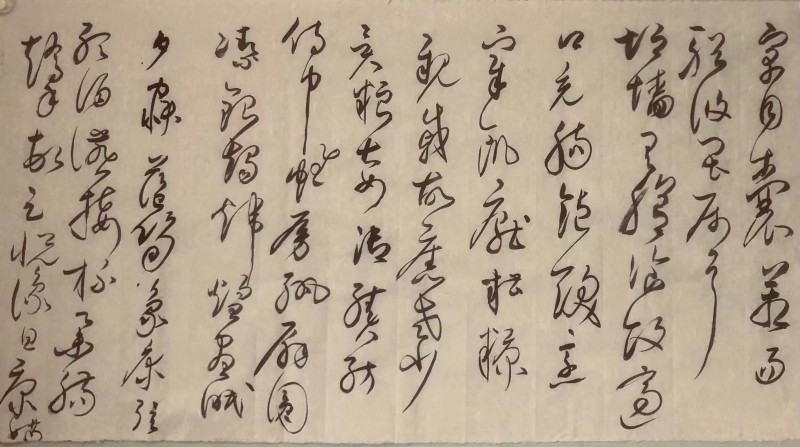 寓目囊箱易
輶攸畏屬耳
垣墻具膳飡飯適
口充腸飽飫烹
宰飢厭糟糠
親戚故舊老少
異糧妾御績紡
侍巾帷房紈扇圓
潔銀燭煒煌晝眠
夕寐藍筍象床弦
歌酒讌接杯舉觴
矯手頓足悅豫且康嫡